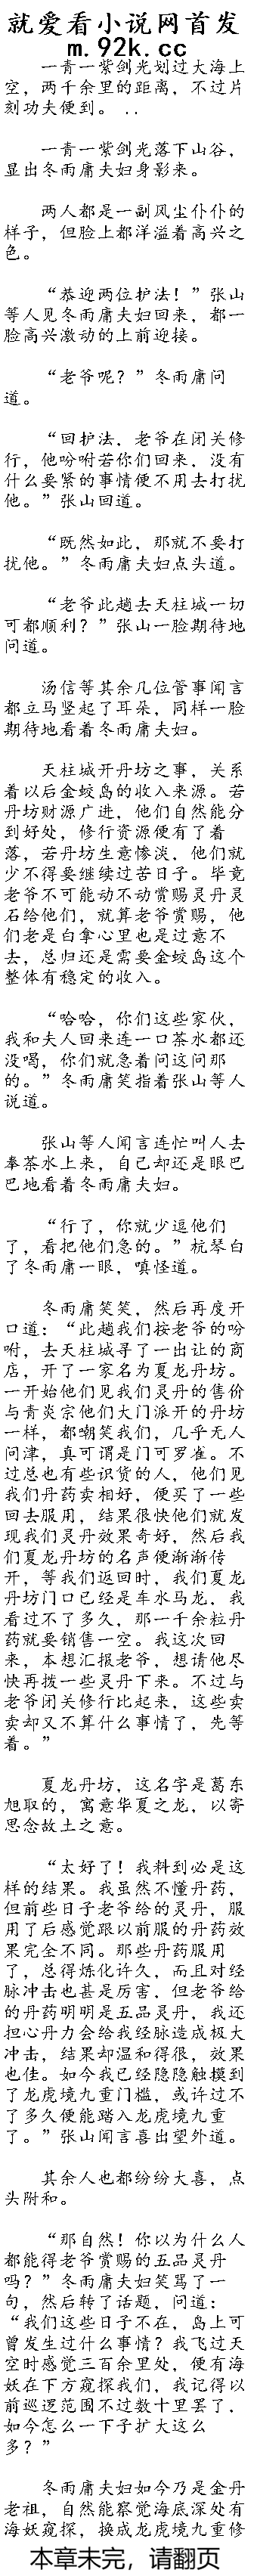 就爱看小说网首发
m.92k.cc
一青一紫剑光划过大海上
空，两千余里的距离，不过片
刻功夫便到。 ..
一青一紫剑光落下山谷，
显出冬雨庸夫妇身影来。
两人都是一副风尘仆仆的
样子，但脸上都洋溢着高兴之
色。
“恭迎两位护法！”张山
等人见冬雨庸夫妇回来，都一
脸高兴激动的上前迎接。
“老爷呢？”冬雨庸问
道。
“回护法，老爷在闭关修
行，他吩咐若你们回来，没有
什么要紧的事情便不用去打扰
他。”张山回道。
“既然如此，那就不要打
扰他。”冬雨庸夫妇点头道。
“老爷此趟去天柱城一切
可都顺利？”张山一脸期待地
问道。
汤信等其余几位管事闻言
都立马竖起了耳朵，同样一脸
期待地看着冬雨庸夫妇。
天柱城开丹坊之事，关系
着以后金蛟岛的收入来源。若
丹坊财源广进，他们自然能分
到好处，修行资源便有了着
落，若丹坊生意惨淡，他们就
少不得要继续过苦日子。毕竟
老爷不可能动不动赏赐灵丹灵
石给他们，就算老爷赏赐，他
们老是白拿心里也是过意不
去，总归还是需要金蛟岛这个
整体有稳定的收入。
“哈哈，你们这些家伙，
我和夫人回来连一口茶水都还
没喝，你们就急着问这问那
的。”冬雨庸笑指着张山等人
说道。
张山等人闻言连忙叫人去
奉茶水上来，自己却还是眼巴
巴地看着冬雨庸夫妇。
“行了，你就少逗他们
了，看把他们急的。”杭琴白
了冬雨庸一眼，嗔怪道。
冬雨庸笑笑，然后再度开
口道：“此趟我们按老爷的吩
咐，去天柱城寻了一出让的商
店，开了一家名为夏龙丹坊。
一开始他们见我们灵丹的售价
与青炎宗他们大门派开的丹坊
一样，都嘲笑我们，几乎无人
问津，真可谓是门可罗雀。不
过总也有些识货的人，他们见
我们丹药卖相好，便买了一些
回去服用，结果很快他们就发
现我们灵丹效果奇好，然后我
们夏龙丹坊的名声便渐渐传
开，等我们返回时，我们夏龙
丹坊门口已经是车水马龙，我
看过不了多久，那一千余粒丹
药就要销售一空。我这次回
来，本想汇报老爷，想请他尽
快再拨一些灵丹下来。不过与
老爷闭关修行比起来，这些卖
卖却又不算什么事情了，先等
着。”
夏龙丹坊，这名字是葛东
旭取的，寓意华夏之龙，以寄
思念故土之意。
“太好了！我料到必是这
样的结果。我虽然不懂丹药，
但前些日子老爷给的灵丹，服
用了后感觉跟以前服的丹药效
果完全不同。那些丹药服用
了，总得炼化许久，而且对经
脉冲击也甚是厉害，但老爷给
的丹药明明是五品灵丹，我还
担心丹力会给我经脉造成极大
冲击，结果却温和得很，效果
也佳。如今我已经隐隐触摸到
了龙虎境九重门槛，或许过不
了多久便能踏入龙虎境九重
了。”张山闻言喜出望外道。
其余人也都纷纷大喜，点
头附和。
“那自然！你以为什么人
都能得老爷赏赐的五品灵丹
吗？”冬雨庸夫妇笑骂了一
句，然后转了话题，问道：
“我们这些日子不在，岛上可
曾发生过什么事情？我飞过天
空时感觉三百余里处，便有海
妖在下方窥探我们，我记得以
前巡逻范围不过数十里罢了，
如今怎么一下子扩大这么
多？”
冬雨庸夫妇如今乃是金丹
老祖，自然能察觉海底深处有
海妖窥探，换成龙虎境九重修
本章未完，请翻页